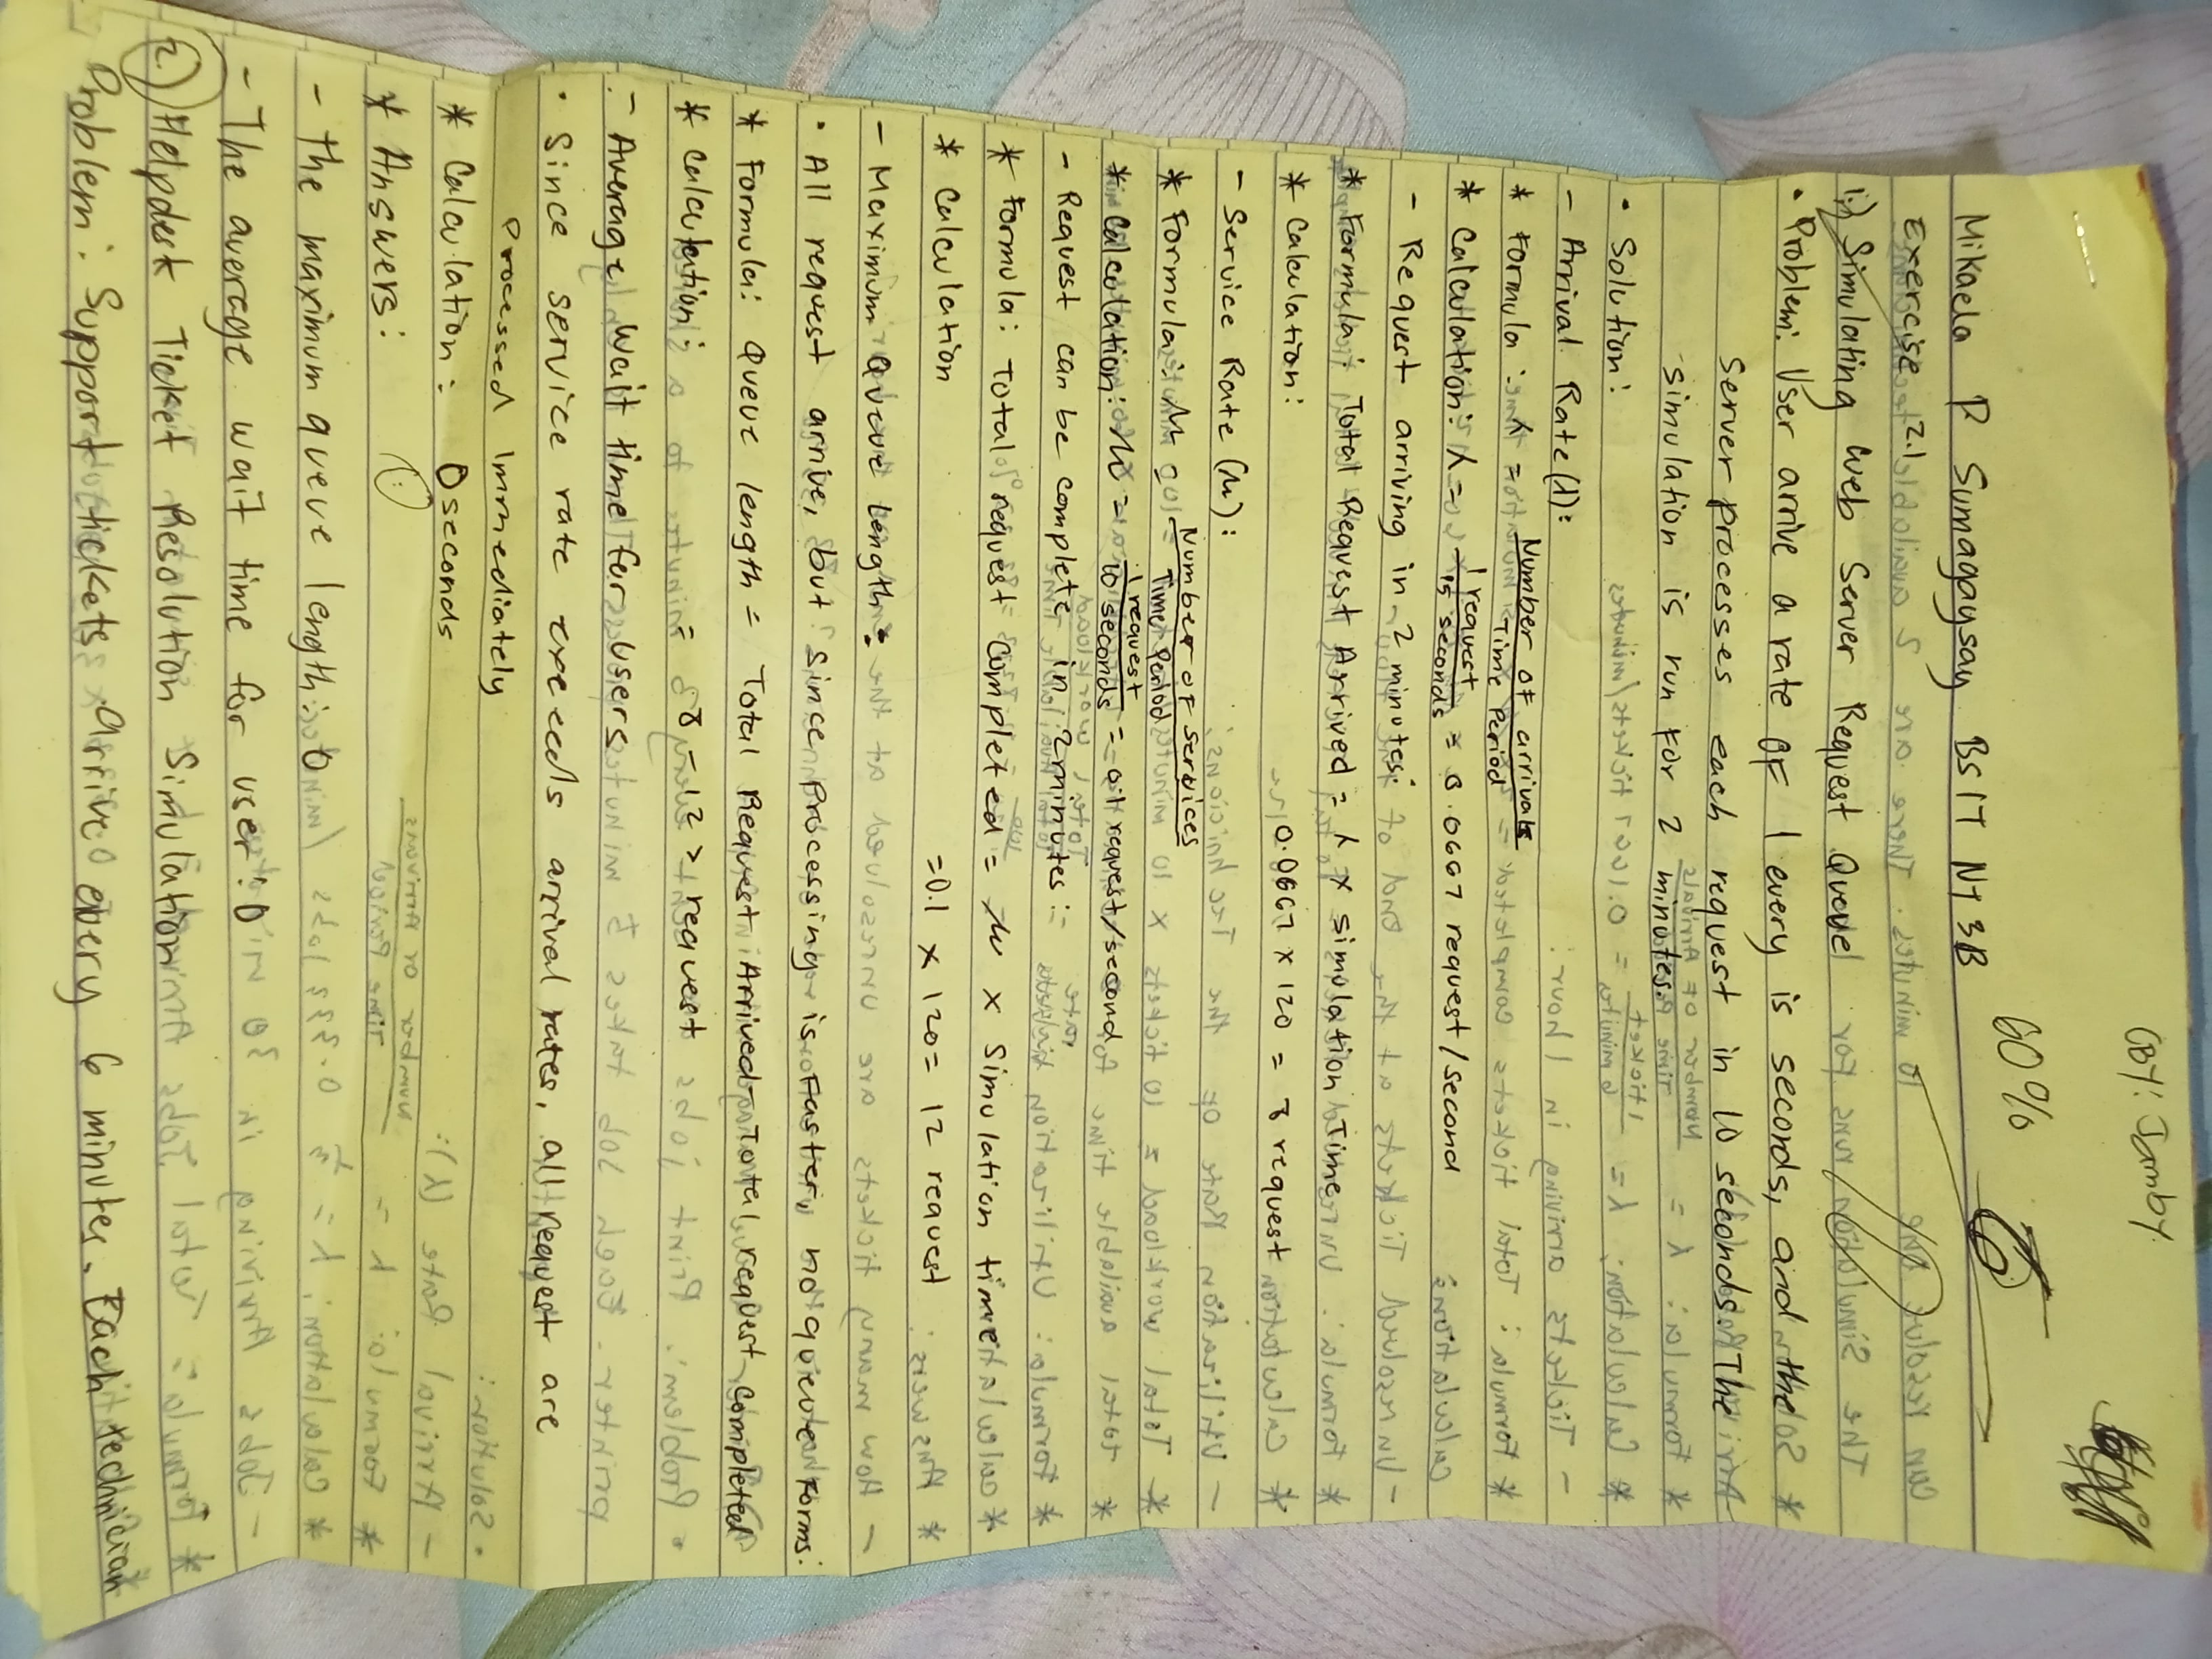 CBY: Jamby
60%
Mikaela P Sumagaysay BSIT NT 3B
Exercise 2.1
1.) Simulating Web Server Request Queue
• Problem: User arrive a rate OF 1 every 15 seconds, and the
Server processes each request in 10 seconds. The
simulation is run for 2 minutes.
• Solution:
- Arrival Rate (λ):
* Formula: λ = Number of arrivals / Time Period
* Calculation: λ = 1 request / 15 seconds = 0.0667 request/second
- Request arriving in 2 minutes:
* Formula: Total Request Arrived = λ x simulation Time
* Calculation: 0.0667 x 120 = 8 request
- Service Rate (μ):
* Formula: μ = Number of services / Time Period
* Calculation: μ = 1 request / 10 seconds = 0.1 request/second
- Request can be complete in 2 minutes:
* Formula: Total request Completed = μ x Simulation time
* Calculation = 0.1 x 120 = 12 request
- Maximum Queue Length:
• All request arrive, but since Processing is Faster, no queue Forms.
* Formula: Queue length = Total Request Arrived - Total request Completed
* Calculation: = 8 - 12 > request
- Average Wait time for Users
• Since service rate exceeds arrival rates, all request are
Processed Immediately
* Calculation: 0 seconds
* Answers:
- The maximum queue length: 0
- The average wait time for user: 0
2.) Helpdesk Ticket Resolution Simulation
Problem: Support tickets Arrive every 6 minutes. Each technician